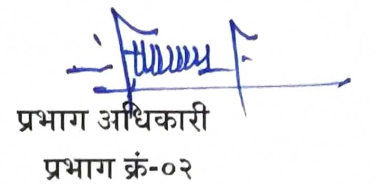 प्रभाग अधिकारी
प्रभाग क्रं-०२